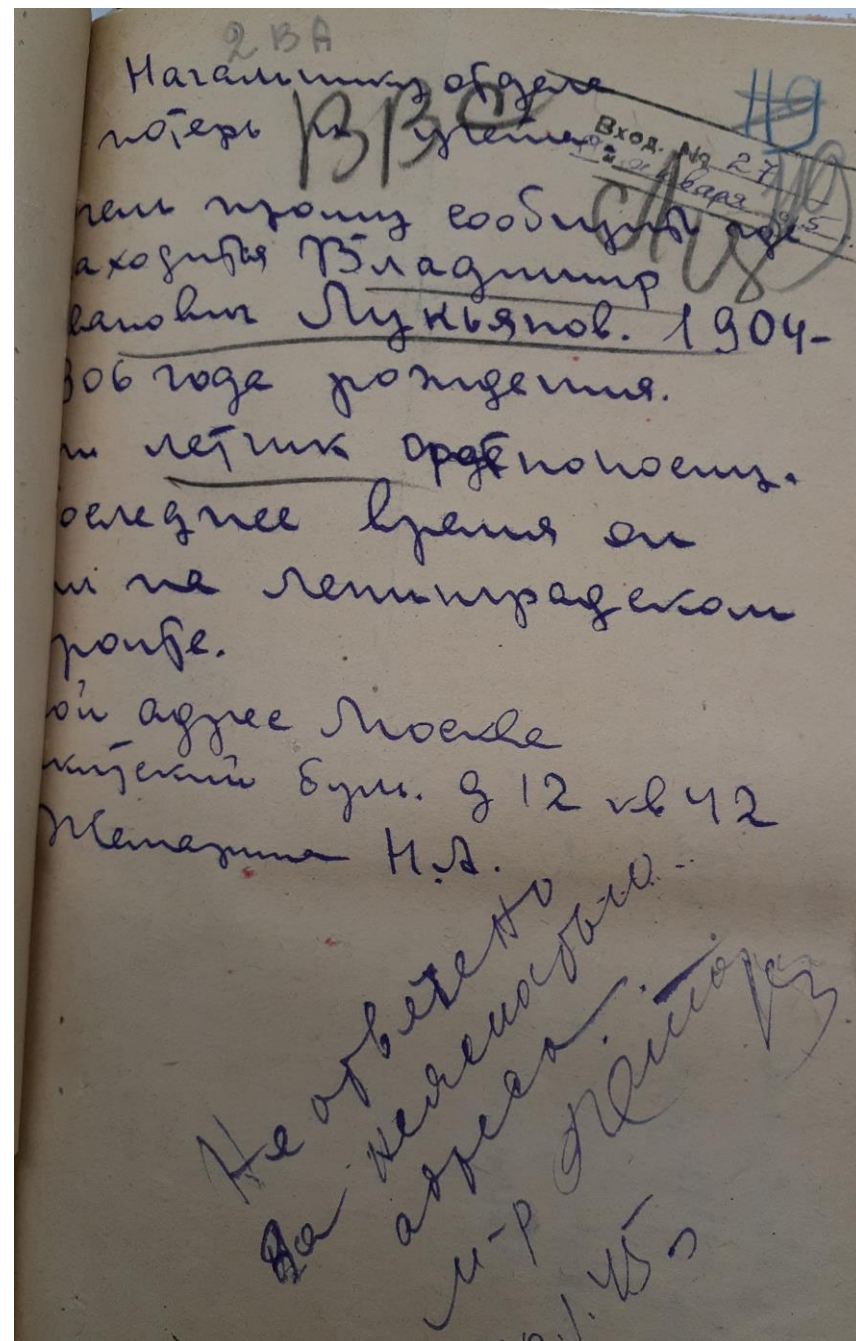 2 ВА
Начальнику отдела
потерь и учета
ВВС
Вход. № 27
января 945
119
очень прошу сообщить где
находиться Владимир
ванович Лукьянов. 1904-
906 года рождения.
летчик орденоносец.
последнее время он
на Ленинградском
ронте.
ой адрес Москва
бул. д 12 кв 42
Н.А.
Не отвечено
за неясностью
адреса.
м-р
1.45 г